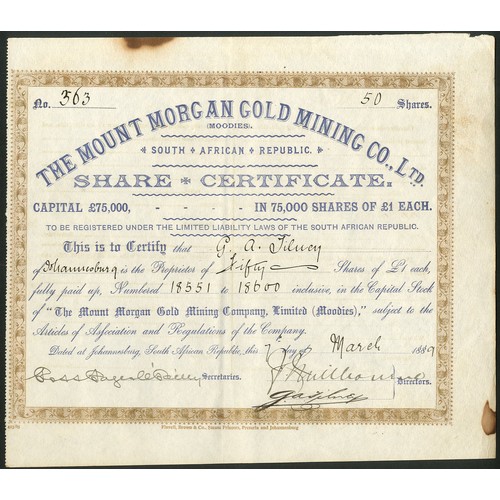 No. 363 50 Shares.
THE MOUNT MORGAN GOLD MINING CO., LTD.
(MOODIES).
SOUTH AFRICAN REPUBLIC.
SHARE CERTIFICATE.
CAPITAL £75,000, - - - - IN 75,000 SHARES OF £1 EACH.
TO BE REGISTERED UNDER THE LIMITED LIABILITY LAWS OF THE SOUTH AFRICAN REPUBLIC.
This is to Certify that G. A. Tilney
of Johannesburg is the Proprietor of Fifty Shares of £1 each,
fully paid up, Numbered 18551 to 18600 inclusive, in the Capital Stock
of "The Mount Morgan Gold Mining Company, Limited (Moodies)," subject to the
Articles of Association and Regulations of the Company.
Dated at Johannesburg, South African Republic, this 7 day of March 1889
Secretaries. Directors.